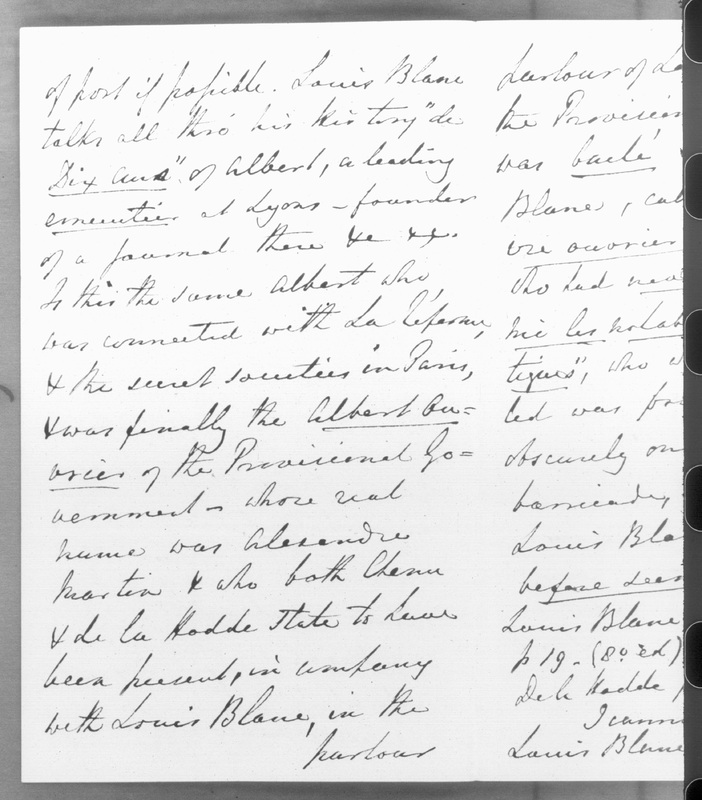 of post if possible. Louis Blanc
talks all thro' his History "de
Dix ans" of Albert, a leading
emeutier at Lyons – founder
of a journal there &c &c.
Is this the same Albert who,
was connected with La Réforme,
& the secret societies in Paris,
& was finally the Albert Ou=
vrier of the Provisional Go=
vernment – whose real
name was Alexandre
Martin & who both Chenu
& de la Hodde state to have
been present, in company
with Louis Blanc, in the
parlour
parlour of La
the Provision
was
Blanc,
ouvrier
who had
les notab
tiques", who w
led was for
obscurely on
barricades,
Louis Bla
before seen
Louis Blanc
p 19 – (8º ed)
De la Hodde
I cann
Louis Blanc